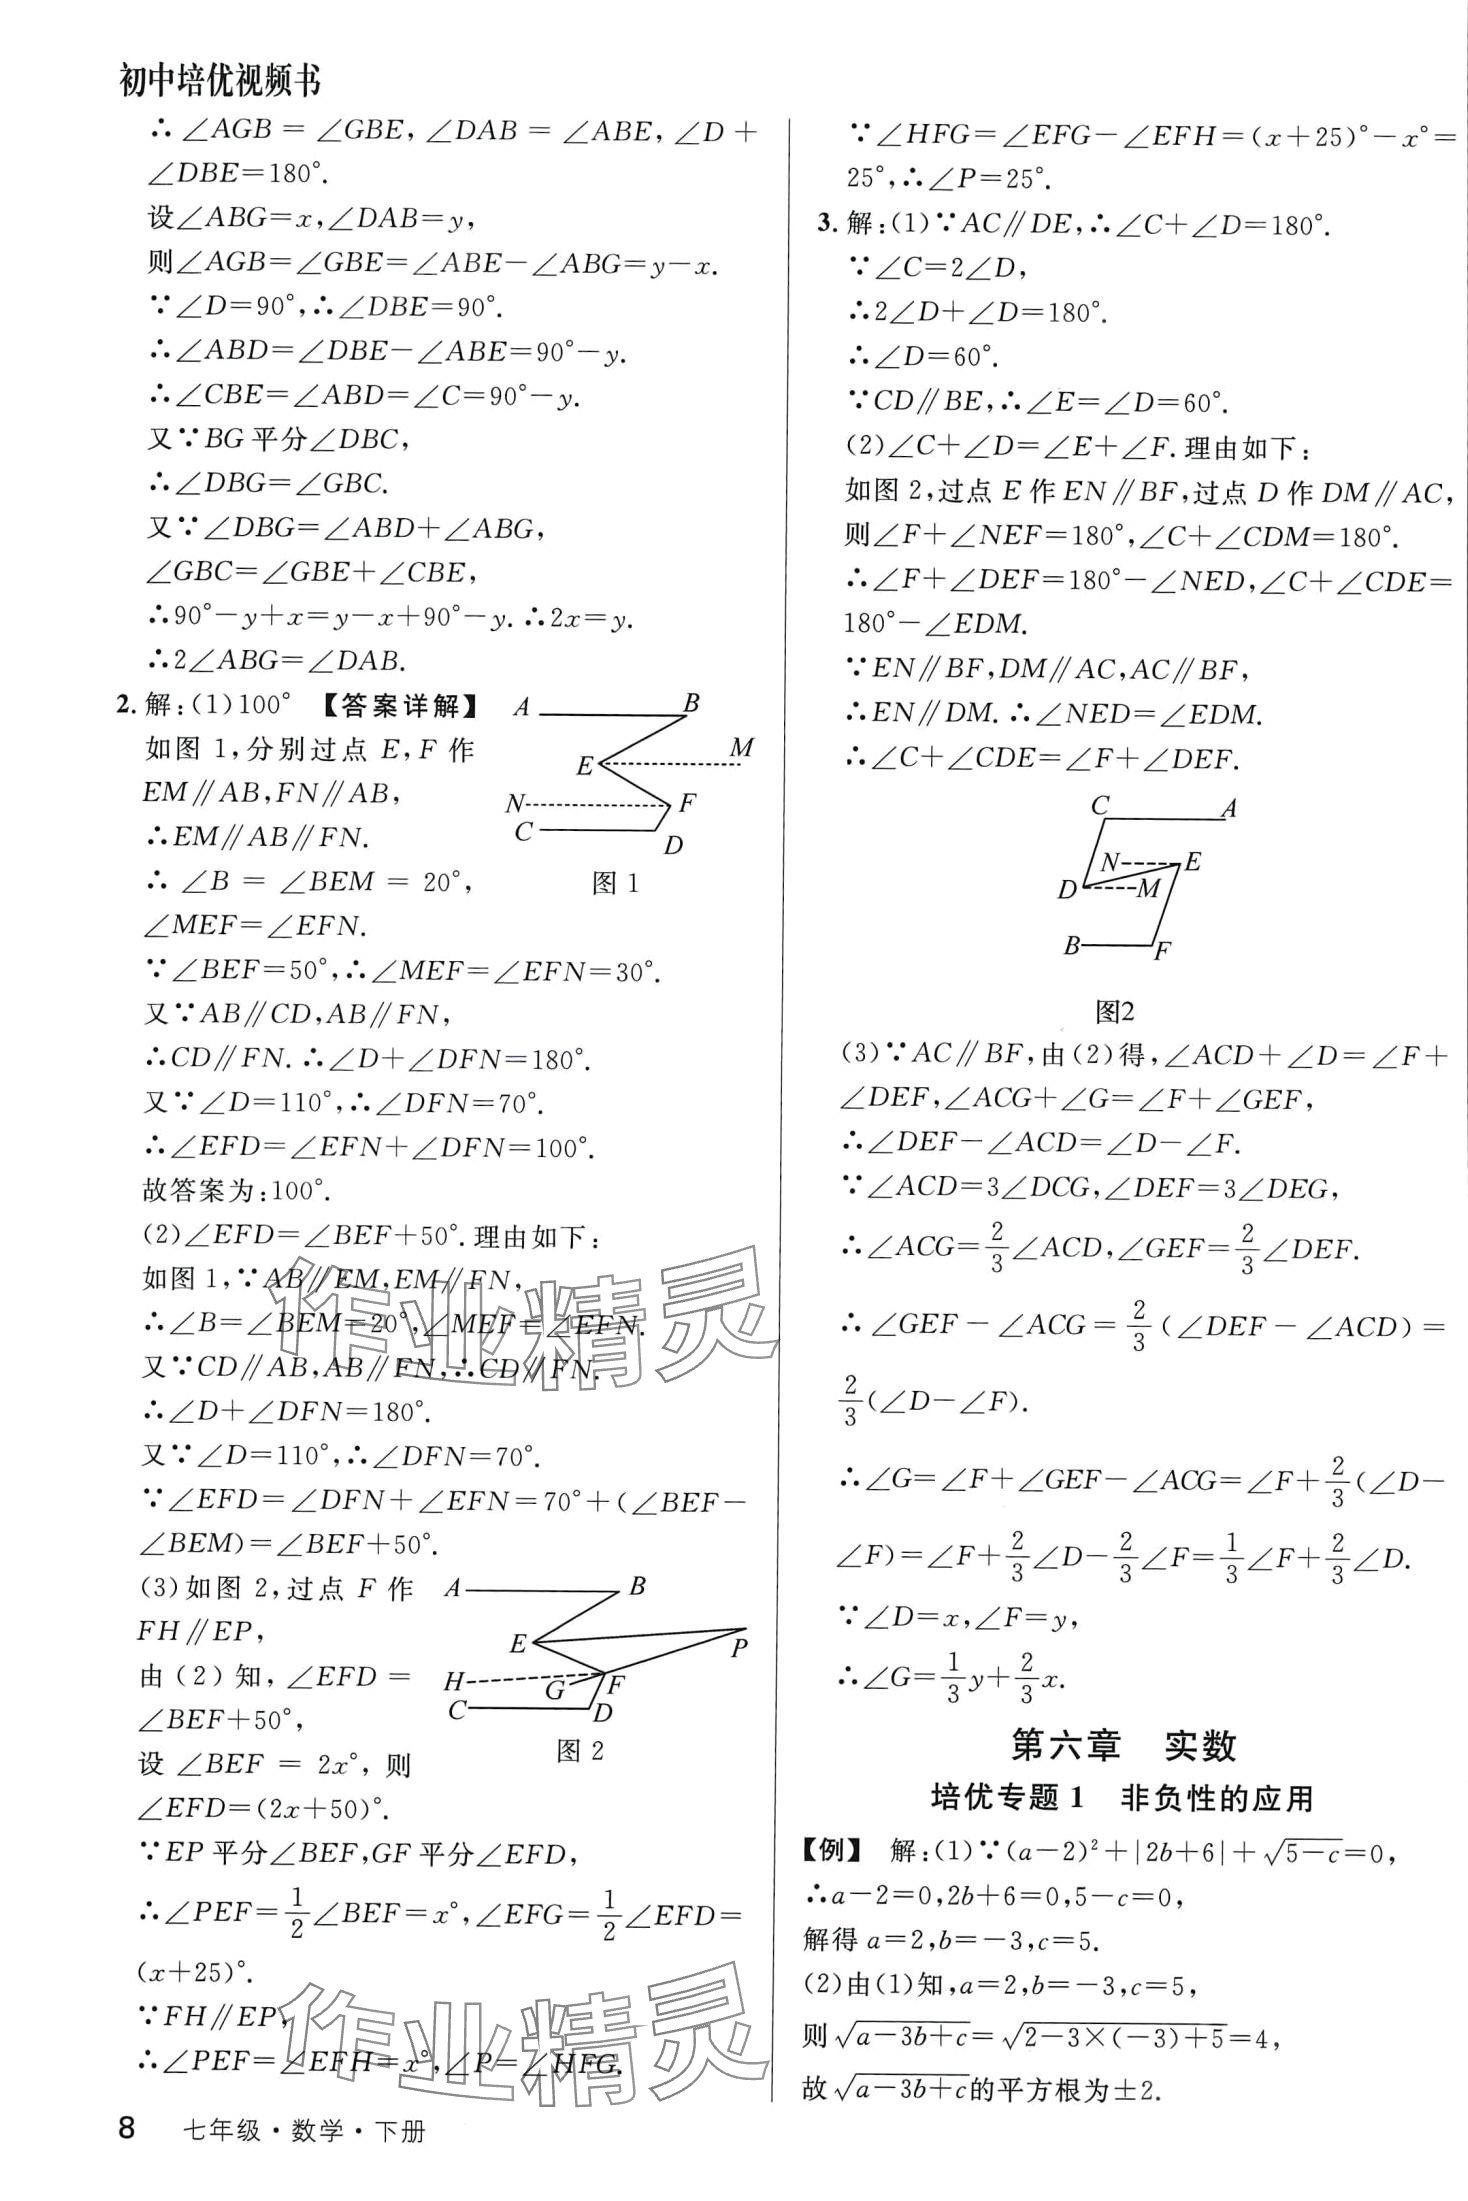 初中培优视频书
∴∠AGB = ∠GBE, ∠DAB = ∠ABE, ∠D +
∠DBE=180°.
设∠ABG=x,∠DAB=y,
则∠AGB=∠GBE=∠ABE-∠ABG=y-x.
∵∠D=90°,∴∠DBE=90°.
∴∠ABD=∠DBE-∠ABE=90°-y.
∴∠CBE=∠ABD=∠C=90°-y.
又∵BG平分∠DBC,
∴∠DBG=∠GBC.
又∵∠DBG=∠ABD+∠ABG,
∠GBC=∠GBE+∠CBE,
∴90°-y+x=y-x+90°-y.∴2x=y.
∴2∠ABG=∠DAB.
2. 解:(1)100° 【答案详解】
如图1,分别过点 E,F 作
EM∥AB,FN∥AB,
∴EM∥AB∥FN.
∴ ∠B = ∠BEM = 20°,
∠MEF=∠EFN.
A B
E M
N F
C D
图1
∵∠BEF=50°,∴∠MEF=∠EFN=30°.
又∵AB∥CD,AB∥FN,
∴CD∥FN.∴∠D+∠DFN=180°.
又∵∠D=110°,∴∠DFN=70°.
∴∠EFD=∠EFN+∠DFN=100°.
故答案为:100°.
(2)∠EFD=∠BEF+50°.理由如下:
如图1,∵AB∥EM,EM∥FN,
∴∠B=∠BEM=20°,∠MEF=∠EFN.
又∵CD∥AB,AB∥FN,∴CD∥FN.
∴∠D+∠DFN=180°.
又∵∠D=110°,∴∠DFN=70°.
∵∠EFD=∠DFN+∠EFN=70°+(∠BEF-
∠BEM)=∠BEF+50°.
(3)如图2,过点 F 作
FH∥EP,
由(2)知,∠EFD =
∠BEF+50°,
设 ∠BEF = 2x°, 则
∠EFD=(2x+50)°.
A B
E P
H G F
C D
图2
∵EP平分∠BEF,GF平分∠EFD,
∴∠PEF=1/2∠BEF=x°,∠EFG=1/2∠EFD=
(x+25)°.
∵FH∥EP,
∴∠PEF=∠EFH=x°,∠P=∠HFG.
∵∠HFG=∠EFG-∠EFH=(x+25)°-x°=
25°,∴∠P=25°.
3. 解:(1)∵AC∥DE,∴∠C+∠D=180°.
∵∠C=2∠D,
∴2∠D+∠D=180°.
∴∠D=60°.
∵CD∥BE,∴∠E=∠D=60°.
(2)∠C+∠D=∠E+∠F.理由如下:
如图2,过点 E 作 EN∥BF,过点 D 作 DM∥AC,
则∠F+∠NEF=180°,∠C+∠CDM=180°.
∴∠F+∠DEF=180°-∠NED,∠C+∠CDE=
180°-∠EDM.
∵EN∥BF,DM∥AC,AC∥BF,
∴EN∥DM.∴∠NED=∠EDM.
∴∠C+∠CDE=∠F+∠DEF.
C A
N E
D M
B F
图2
(3)∵AC∥BF,由(2)得,∠ACD+∠D=∠F+
∠DEF,∠ACG+∠G=∠F+∠GEF,
∴∠DEF-∠ACD=∠D-∠F.
∵∠ACD=3∠DCG,∠DEF=3∠DEG,
∴∠ACG=2/3∠ACD,∠GEF=2/3∠DEF.
∴∠GEF-∠ACG=2/3(∠DEF-∠ACD)=
2/3(∠D-∠F).
∴∠G=∠F+∠GEF-∠ACG=∠F+2/3(∠D-
∠F)=∠F+2/3∠D-2/3∠F=1/3∠F+2/3∠D.
∵∠D=x,∠F=y,
∴∠G=1/3y+2/3x.
第六章 实数
培优专题1 非负性的应用
【例】 解:(1)∵(a-2)²+|2b+6|+√(5-c)=0,
∴a-2=0,2b+6=0,5-c=0,
解得a=2,b=-3,c=5.
(2)由(1)知,a=2,b=-3,c=5,
则√(a-3b+c)=√(2-3×(-3)+5)=4,
故√(a-3b+c)的平方根为±2.
作业精灵
作业精灵
8 七年级·数学·下册